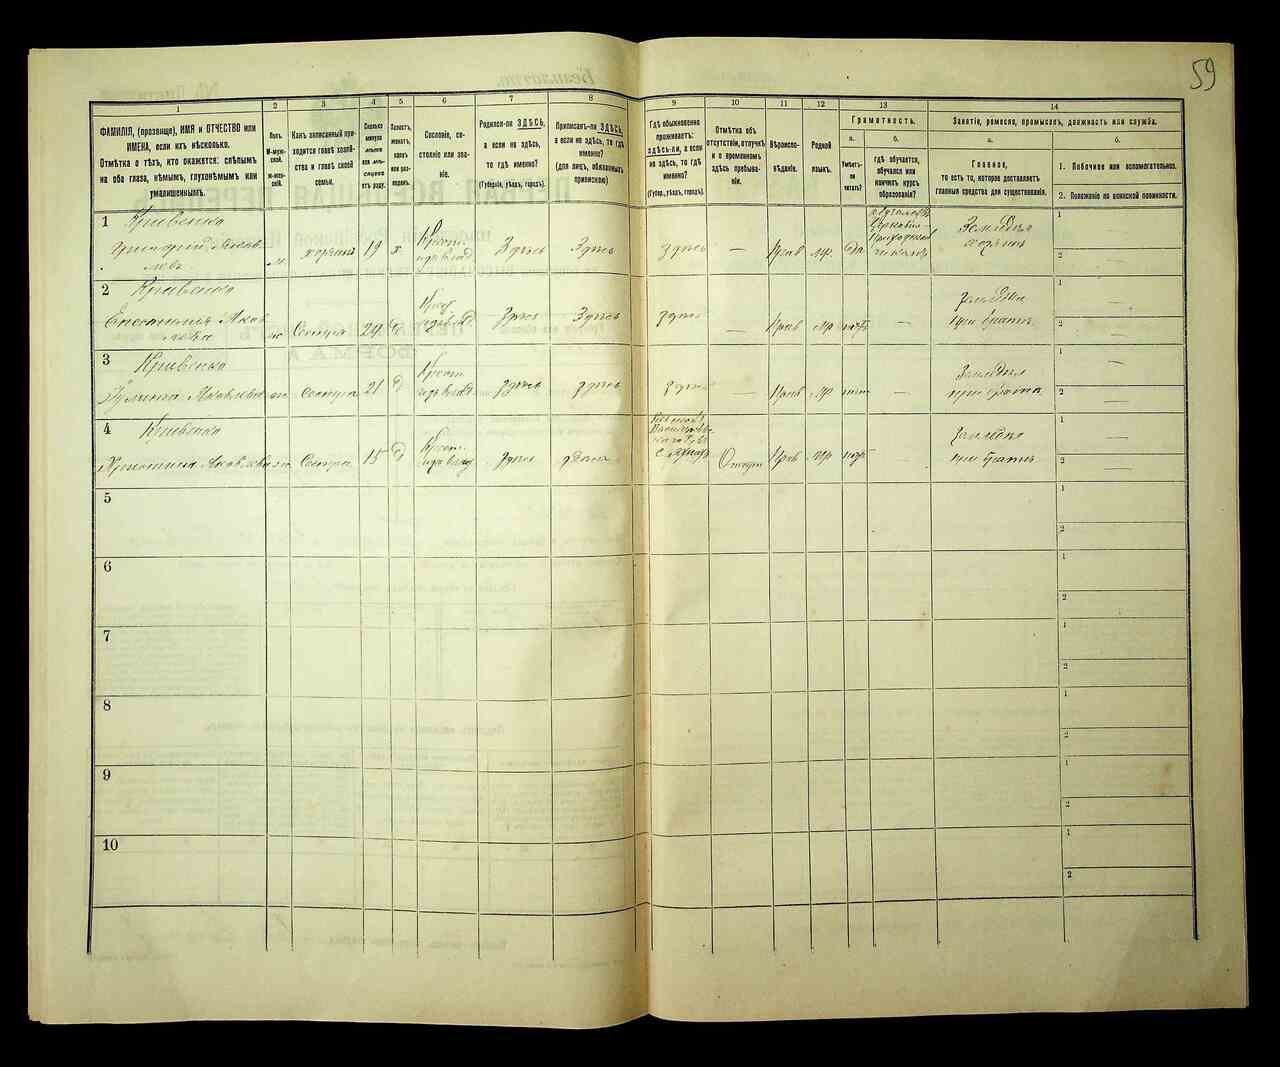 59
1
2
3
4
5
6
7
8
9
10
11
12
13
14
ФАМИЛІЯ, (прозвище), ИМЯ и ОТЧЕСТВО или
ИМЕНА, если ихъ нѣсколько.
Отмѣтка о тѣхъ, кто окажется: слѣпымъ
на оба глаза, нѣмымъ, глухонѣмымъ или
умалишеннымъ.
Полъ
М-муж-
ской.
Ж-жен-
скій.
Какъ записанный при-
ходится главѣ хозяй-
ства и главѣ своей
семьи.
Сколько
минуло
лѣтъ
или мѣ-
сяцевъ
отъ роду.
Холостъ,
женатъ,
вдовъ
или раз-
веденъ.
Сословіе, со-
стояніе или зва-
ніе.
Родился-ли ЗДѢСЬ,
а если не здѣсь,
то гдѣ именно?
(Губернія, уѣздъ, городъ).
Приписанъ-ли ЗДѢСЬ,
а если не здѣсь, то гдѣ
именно?
(для лицъ, обязанныхъ
припискою)
Гдѣ обыкновенно
проживаетъ:
здѣсь-ли, а если
не здѣсь, то гдѣ
именно?
(Губер., уѣздъ, городъ).
Отмѣтка объ
отсутствіи, отлучкѣ
и о временномъ
здѣсь пребыва-
ніи.
Вѣроиспо-
вѣданіе.
Родной
языкъ.
Грамотность.
а.
Умѣетъ-
ли
читать?
б.
гдѣ обучается,
обучался или
кончилъ курсъ
образованія?
Занятіе, ремесло, промыселъ, должность или служба.
а.
Главное,
то есть то, которое доставляетъ
главныя средства для существованія.
б.
1. Побочное или вспомогательное.
2. Положеніе по воинской повинности.
1
Кривенко
Григорій Яков
левъ
м
хозяинъ
19
х
Крест.
Здѣсь
Здѣсь
здѣсь
—
Прав
мр.
Да
Церковно-
Приходской
Земледѣл
хозяинъ
1
—
2
—
2
Кривенко
Яков
лева
ж
Сестра
29
д
Крест
Здѣсь
Здѣсь
здѣсь
—
Прав
мр
нѣтъ
—
Земледѣл
при братѣ
1
—
2
—
3
Кривенко
Яковлева
ж
Сестра
21
д
Крест
здѣсь
здѣсь
здѣсь
—
Прав
мр
нѣт
—
Земледѣл
при брата
1
—
2
—
4
Кривенко
Христина Яковлева
ж
Сестра
15
д
Крест.
здѣсь
здѣсь
Отсут
Прав
мр
нѣт
—
Земледѣл
при братѣ
1
—
2
—
5
1
2
6
1
2
7
1
2
8
1
2
9
1
2
10
1
2